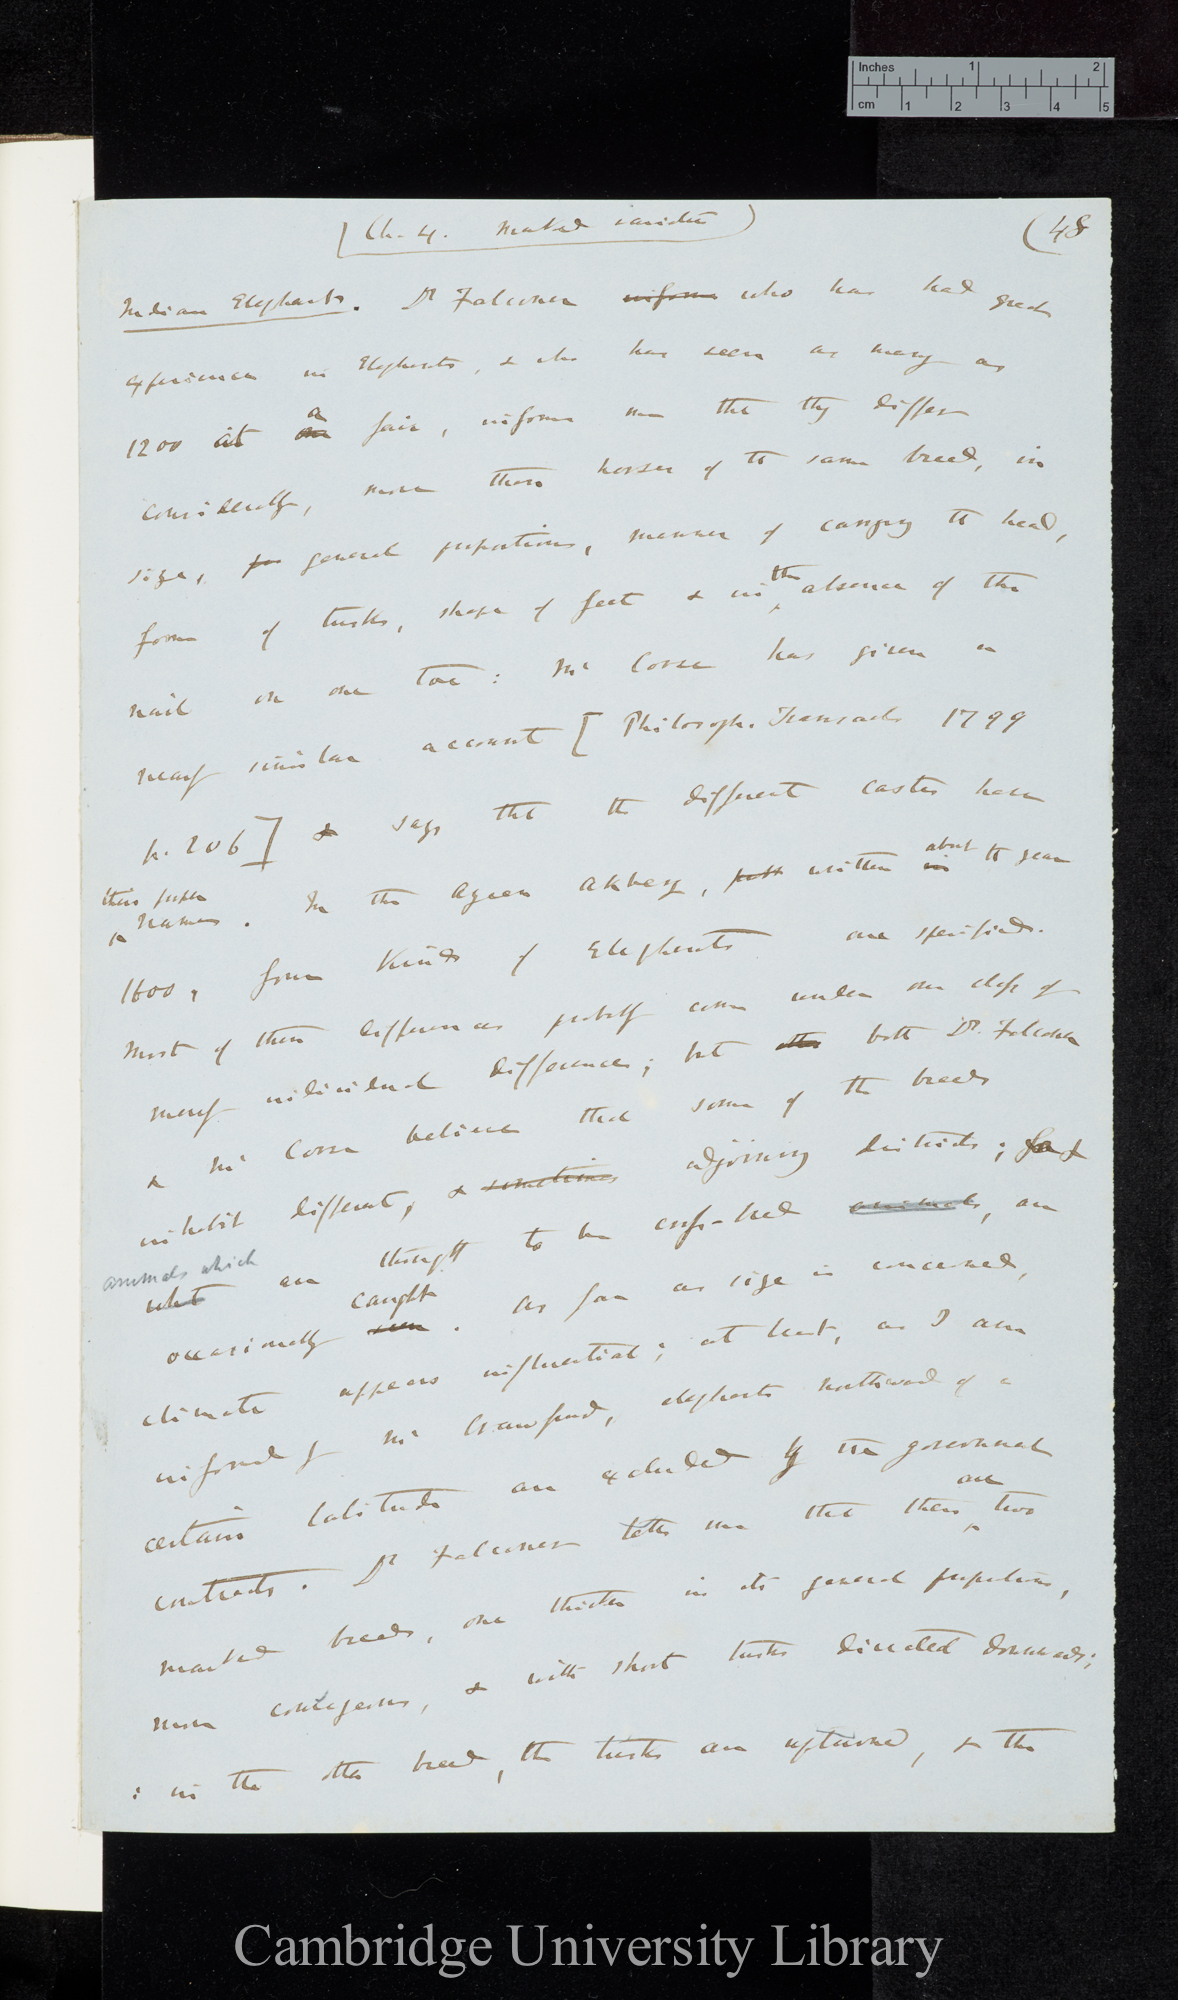 Inches 1 2
cm 1 2 3 4 5
(Ch. 4. Marked varieties)
(48
Indian Elephants. Dr Falconer informs who has had great
experience in Elephants, & who has seen as many as
1200 at one a fair, informs me that they differ
considerably, more than horses of the same breed, in
size, pro general proportions, manner of carrying the head,
form of tusks, shape of feet & in the absence of the
nail on one toe: Mr Corse has given a
nearly similar account [Philosoph. Transacts 1799
p. 206] & says that the different castes have
their proper names. In the Ayeen Akbery, written in about the year
1600, four kinds of Elephants are specified.
Most of these differences probably come under our class of
merely individual differences; but other both Dr. Falconer
& Mr Corse believe that some of the breeds
inhabit different, & sometimes adjoining districts; for &
what animals which are thought to be cross-bred animals, are
occasionally seen caught. As far as size is concerned,
climate appears influential; at least, as I am
informed by Mr Crawfurd, elephants northward of a
certain latitude are excluded by the government
contracts. Dr Falconer tells me that there are two
marked breeds, one thicker in its general proportions,
more courageous, & with short tusks directed downwards;
: in the other breed, the tusks are upturned, & the
Cambridge University Library